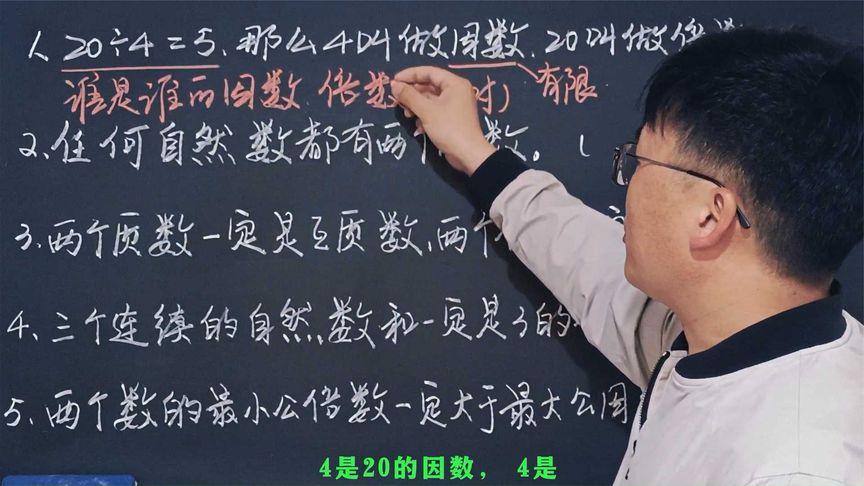 1. 20÷4=5, 那么4叫做因数, 20叫做倍数
谁是谁的因数 倍数 对) 有限
2. 任何自然数都有两个 数。 (
3. 两个质数一定是互质数, 两个
4. 三个连续的自然数和一定是3的
5. 两个数的最小公倍数一定大于最大公因
4是20的因数， 4是